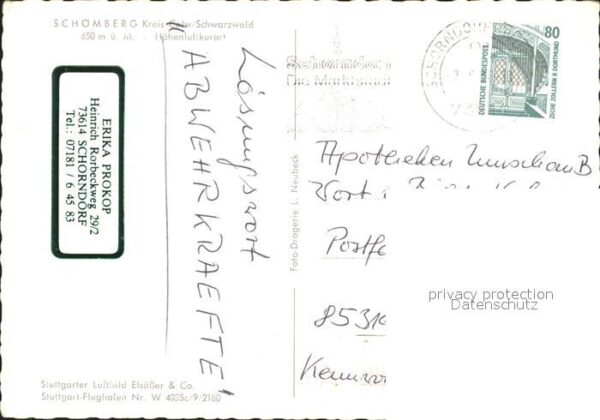 SCHÖMBERG Kreis Calw/Schwarzwald
650 m ü. M. - Höhenluftkurort
ERIKA PROKOP
Heinrich Rorbeckweg 29/2
73614 SCHORNDORF
Tel.: 07181 / 6 45 83
Lösungswort
"ABWEHRKRAEFTE"
Foto-Drogerie L. Neubeck
Schorndorf
Die Marktstadt
SCHORNDORF
80
DEUTSCHE BUNDESPOST
ZECHE ZOLLERN II DORTMUND
Apotheken Umschau B
Wort
Postf
8531
Kennwo
privacy protection
Datenschutz
Stuttgarter Luftbild Elsäßer & Co.
Stuttgart-Flughafen Nr. W 4035c/9/2180